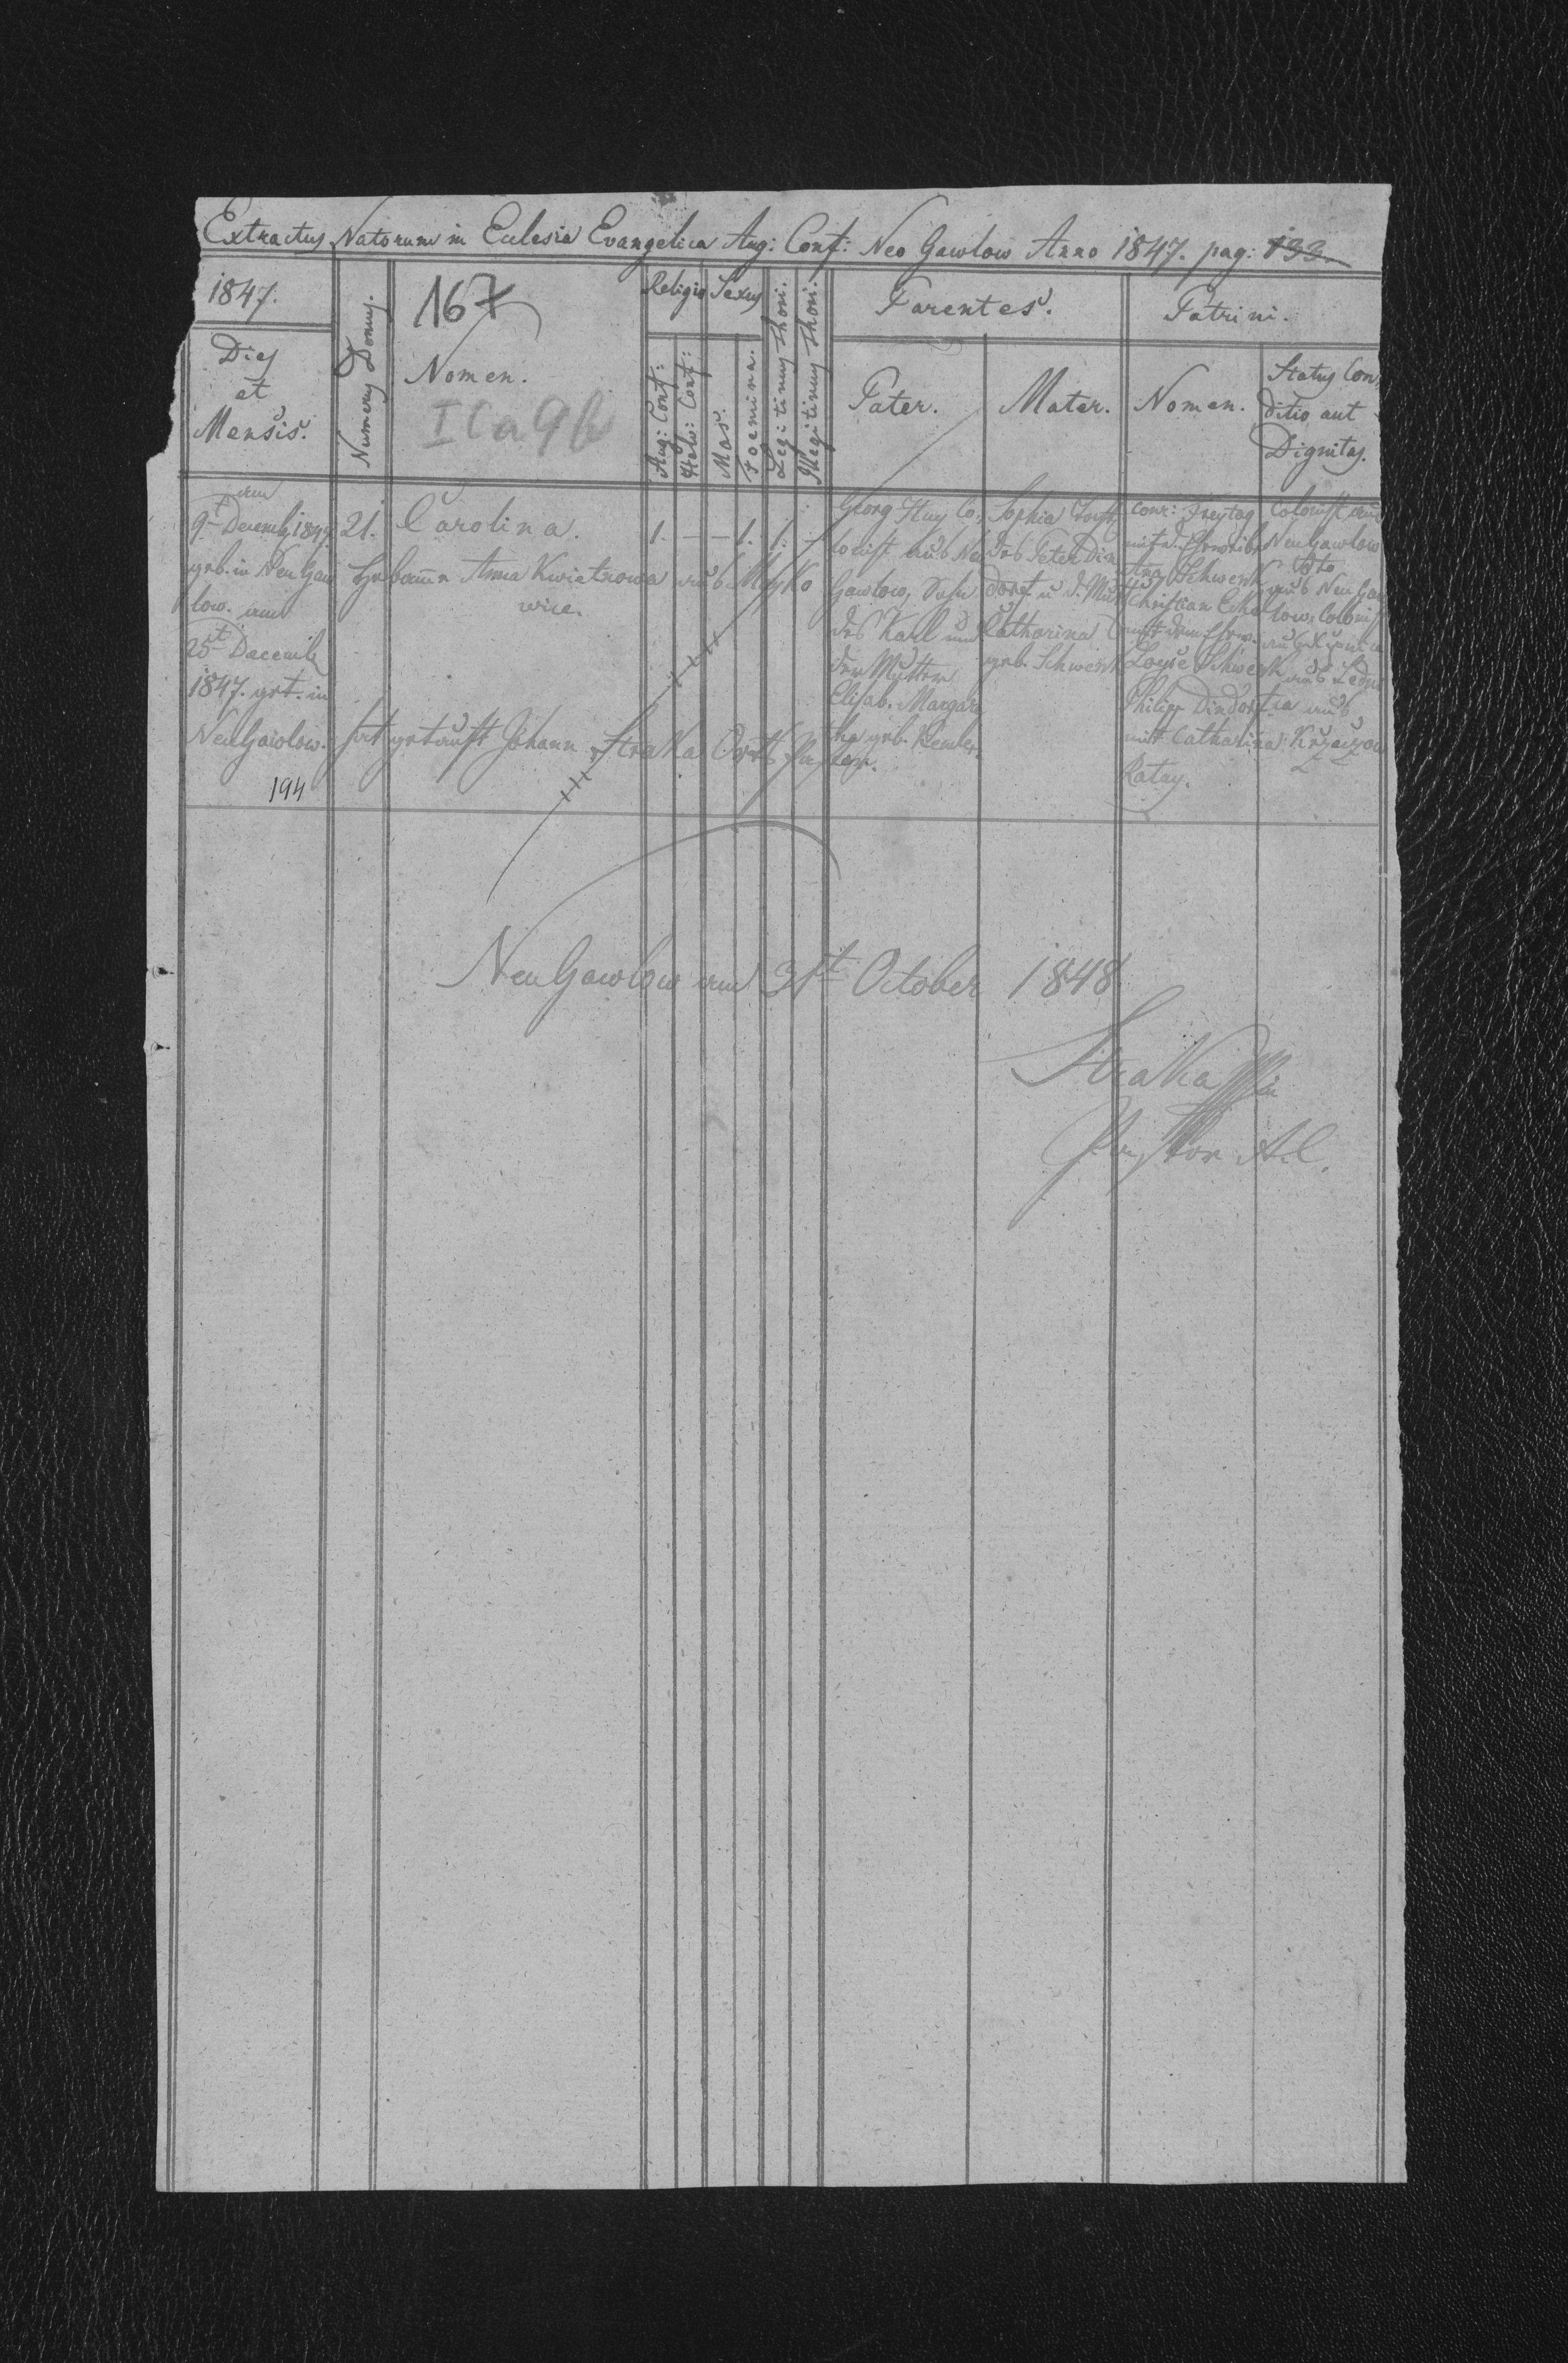 Extractus Natorum in Eclesia Evangelica Aug: Conf: Neo Gawlow Anno 1847. pag: 133.
1847.
Dies
et
Mensis.
Numerus Domus.
167
Nomen.
I C a 9 b
Religio
Aug: Conf:
Helv: Conf:
Sexus
Mas.
Foemina.
Legitimus Thori.
Illegitimus Thori.
Parentes.
Pater.
Mater.
Patrini.
Nomen.
Status Con-
ditio aut
Dignitas.
am
9t Decemb 1847
geb. in Neu Gaw
low. am
25t Decemb
1847. get. in
NeuGawlow.
194
21.
Carolina.
Hebamme Anna Kwiatnowa aus
wice.
hat getauft Johann Straka Orts Pastor.
1. — — 1. 1. —
Georg Huy Co-
lonist aus Neu
Gawlow, Sohn
des Karl und
der Mutter
Elisab. Margare
tha geb. Kemler.
Sophia Tocht.
des Peter Din
dorf u d. Mutt
Catharina
geb. Schwenk
Conr: Freytag
mit d. Eheweibe
Schwenk
Christian
mit dem Ehew.
Loyse Schwenk
Philipp Dindorf
mit Catharina
Ratay.
Colonist aus
NeuGawlow
dtto
aus Neu Gaw
low, Colonist
aus
aus
NeuGawlow am 31t October 1848
Straka
Pastor A.C.